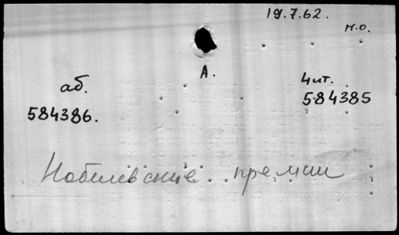 19.7.62.
м.о.
А.
аб.
584386.
Чит.
584385
Нобелевские премии